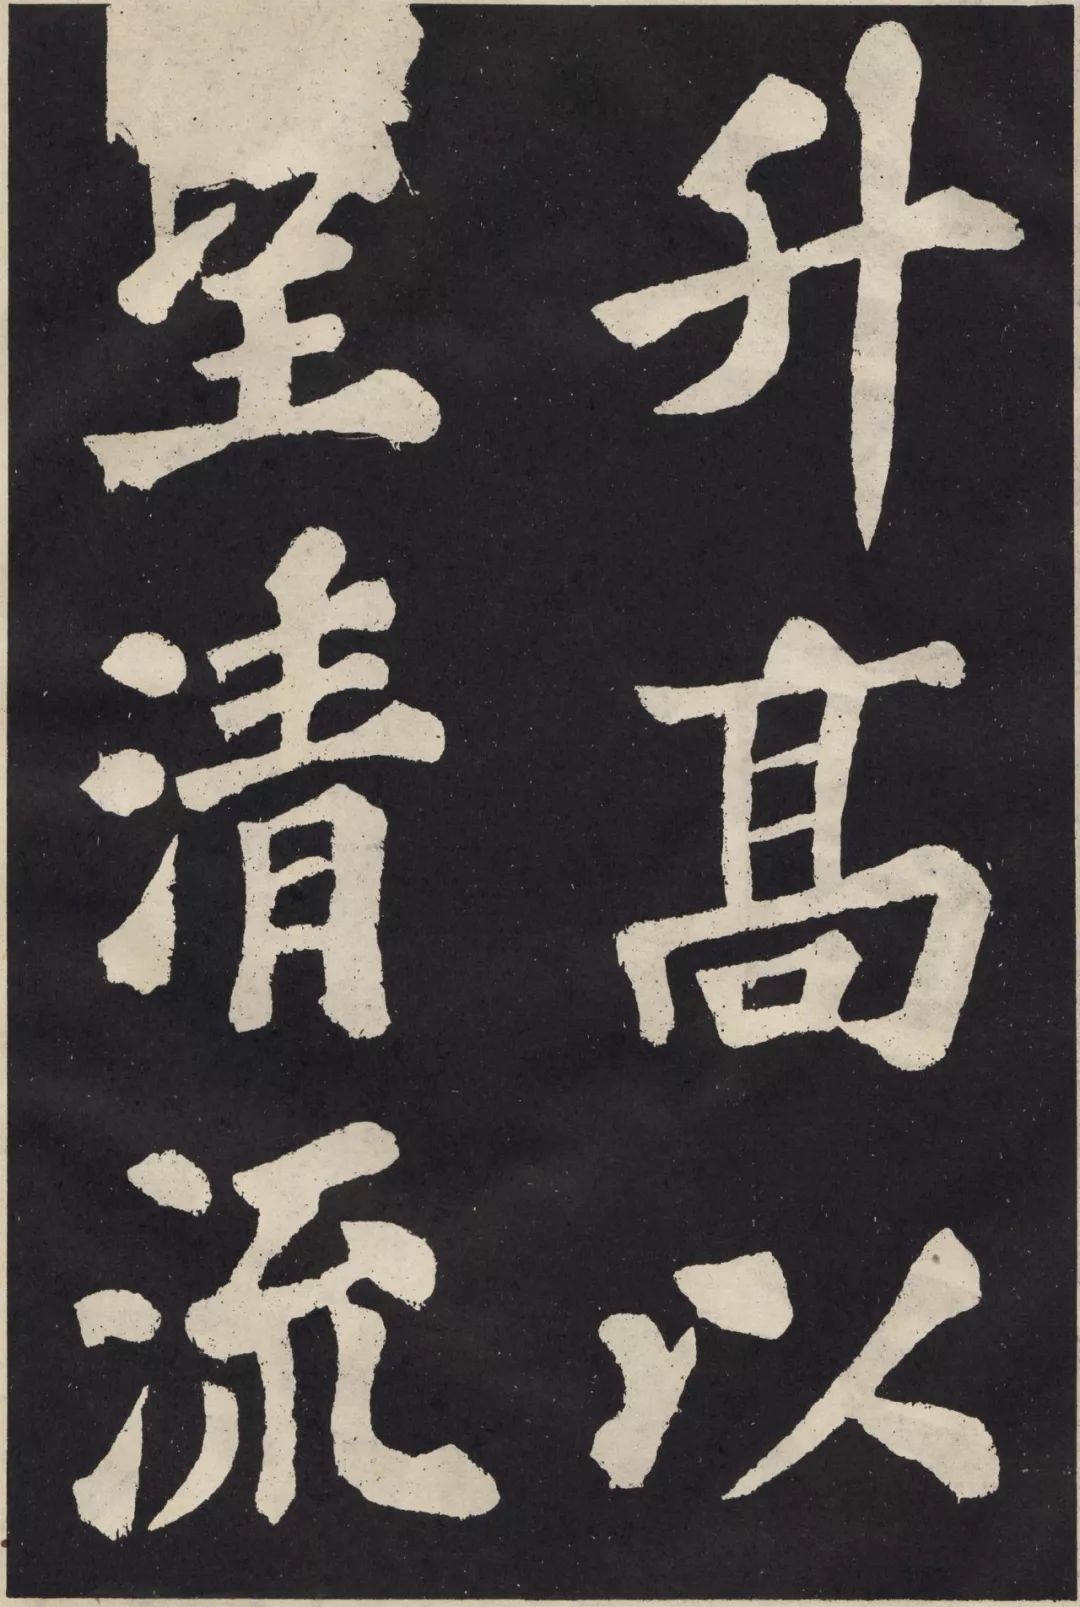 升高以
望清流